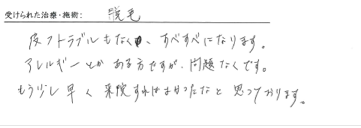 受けられた治療・施術: 脱毛
皮フトラブルもなく、すべすべになります。
アレルギーとかある方ですが、問題なくです。
もう少し早く来院すればよかったなと思っております。